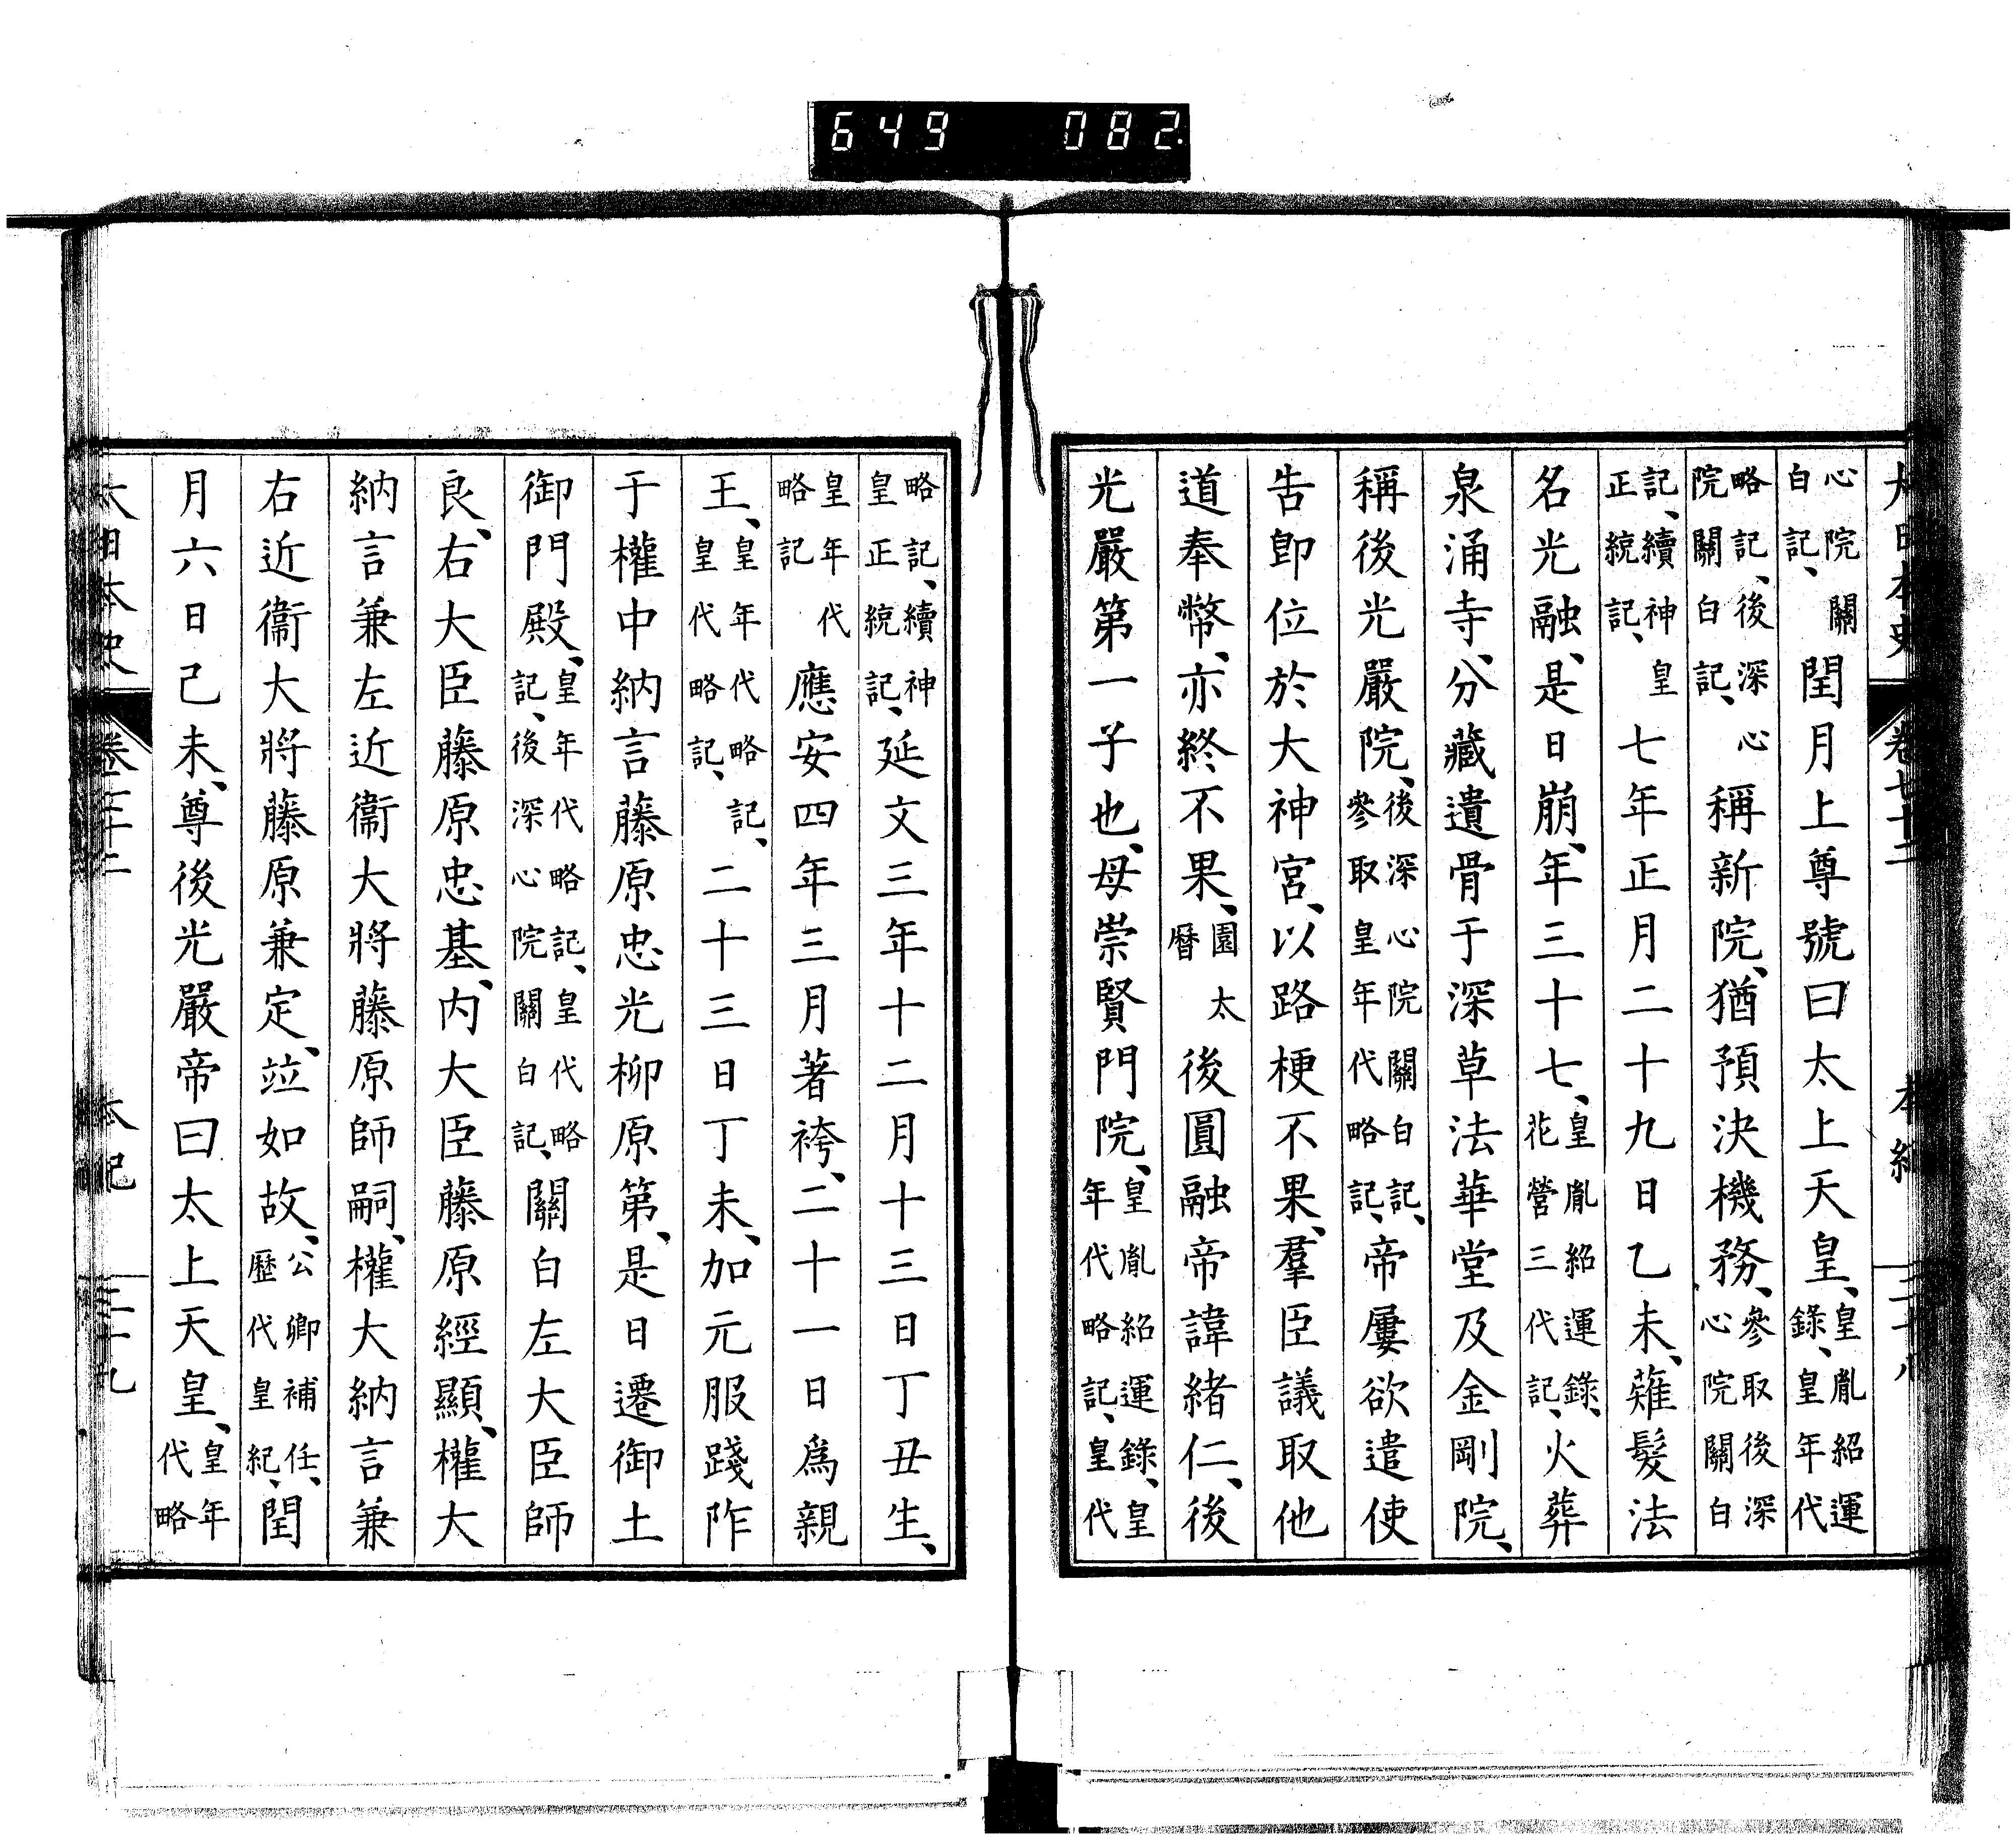 大日本史 卷七十二 本紀 二十八
心院關白記、閏月上尊號曰太上天皇、皇胤紹運錄、皇年代
略記、後深心院關白記、稱新院、猶預決機務、參取後深心院關白
記、續神皇正統記、七年正月二十九日乙未、薙髮法
名光融、是日崩、年三十七、皇胤紹運錄、花營三代記、火葬
泉涌寺、分藏遺骨于深草法華堂及金剛院、
稱後光嚴院、後深心院關白記、參取皇年代略記、帝屢欲遣使
告卽位於大神宮、以路梗不果、羣臣議取他
道奉幣、亦終不果、園太曆後圓融帝諱緒仁、後
光嚴第一子也、母崇賢門院、皇胤紹運錄、皇年代略記、皇代
略記、續神皇正統記、延文三年十二月十三日丁丑生、
皇年代略記應安四年三月著袴、二十一日爲親
王、皇年代略記、皇代略記、二十三日丁未、加元服踐阼
于權中納言藤原忠光柳原第、是日遷御土
御門殿、皇年代略記、皇代略記、後深心院關白記、關白左大臣師
良、右大臣藤原忠基、內大臣藤原經顯、權大
納言兼左近衞大將藤原師嗣、權大納言兼
右近衞大將藤原兼定、竝如故、公卿補任、歷代皇紀、閏
月六日己未、尊後光嚴帝曰太上天皇、皇年代略
大日本史 卷七十二 本紀 二十九
649 082